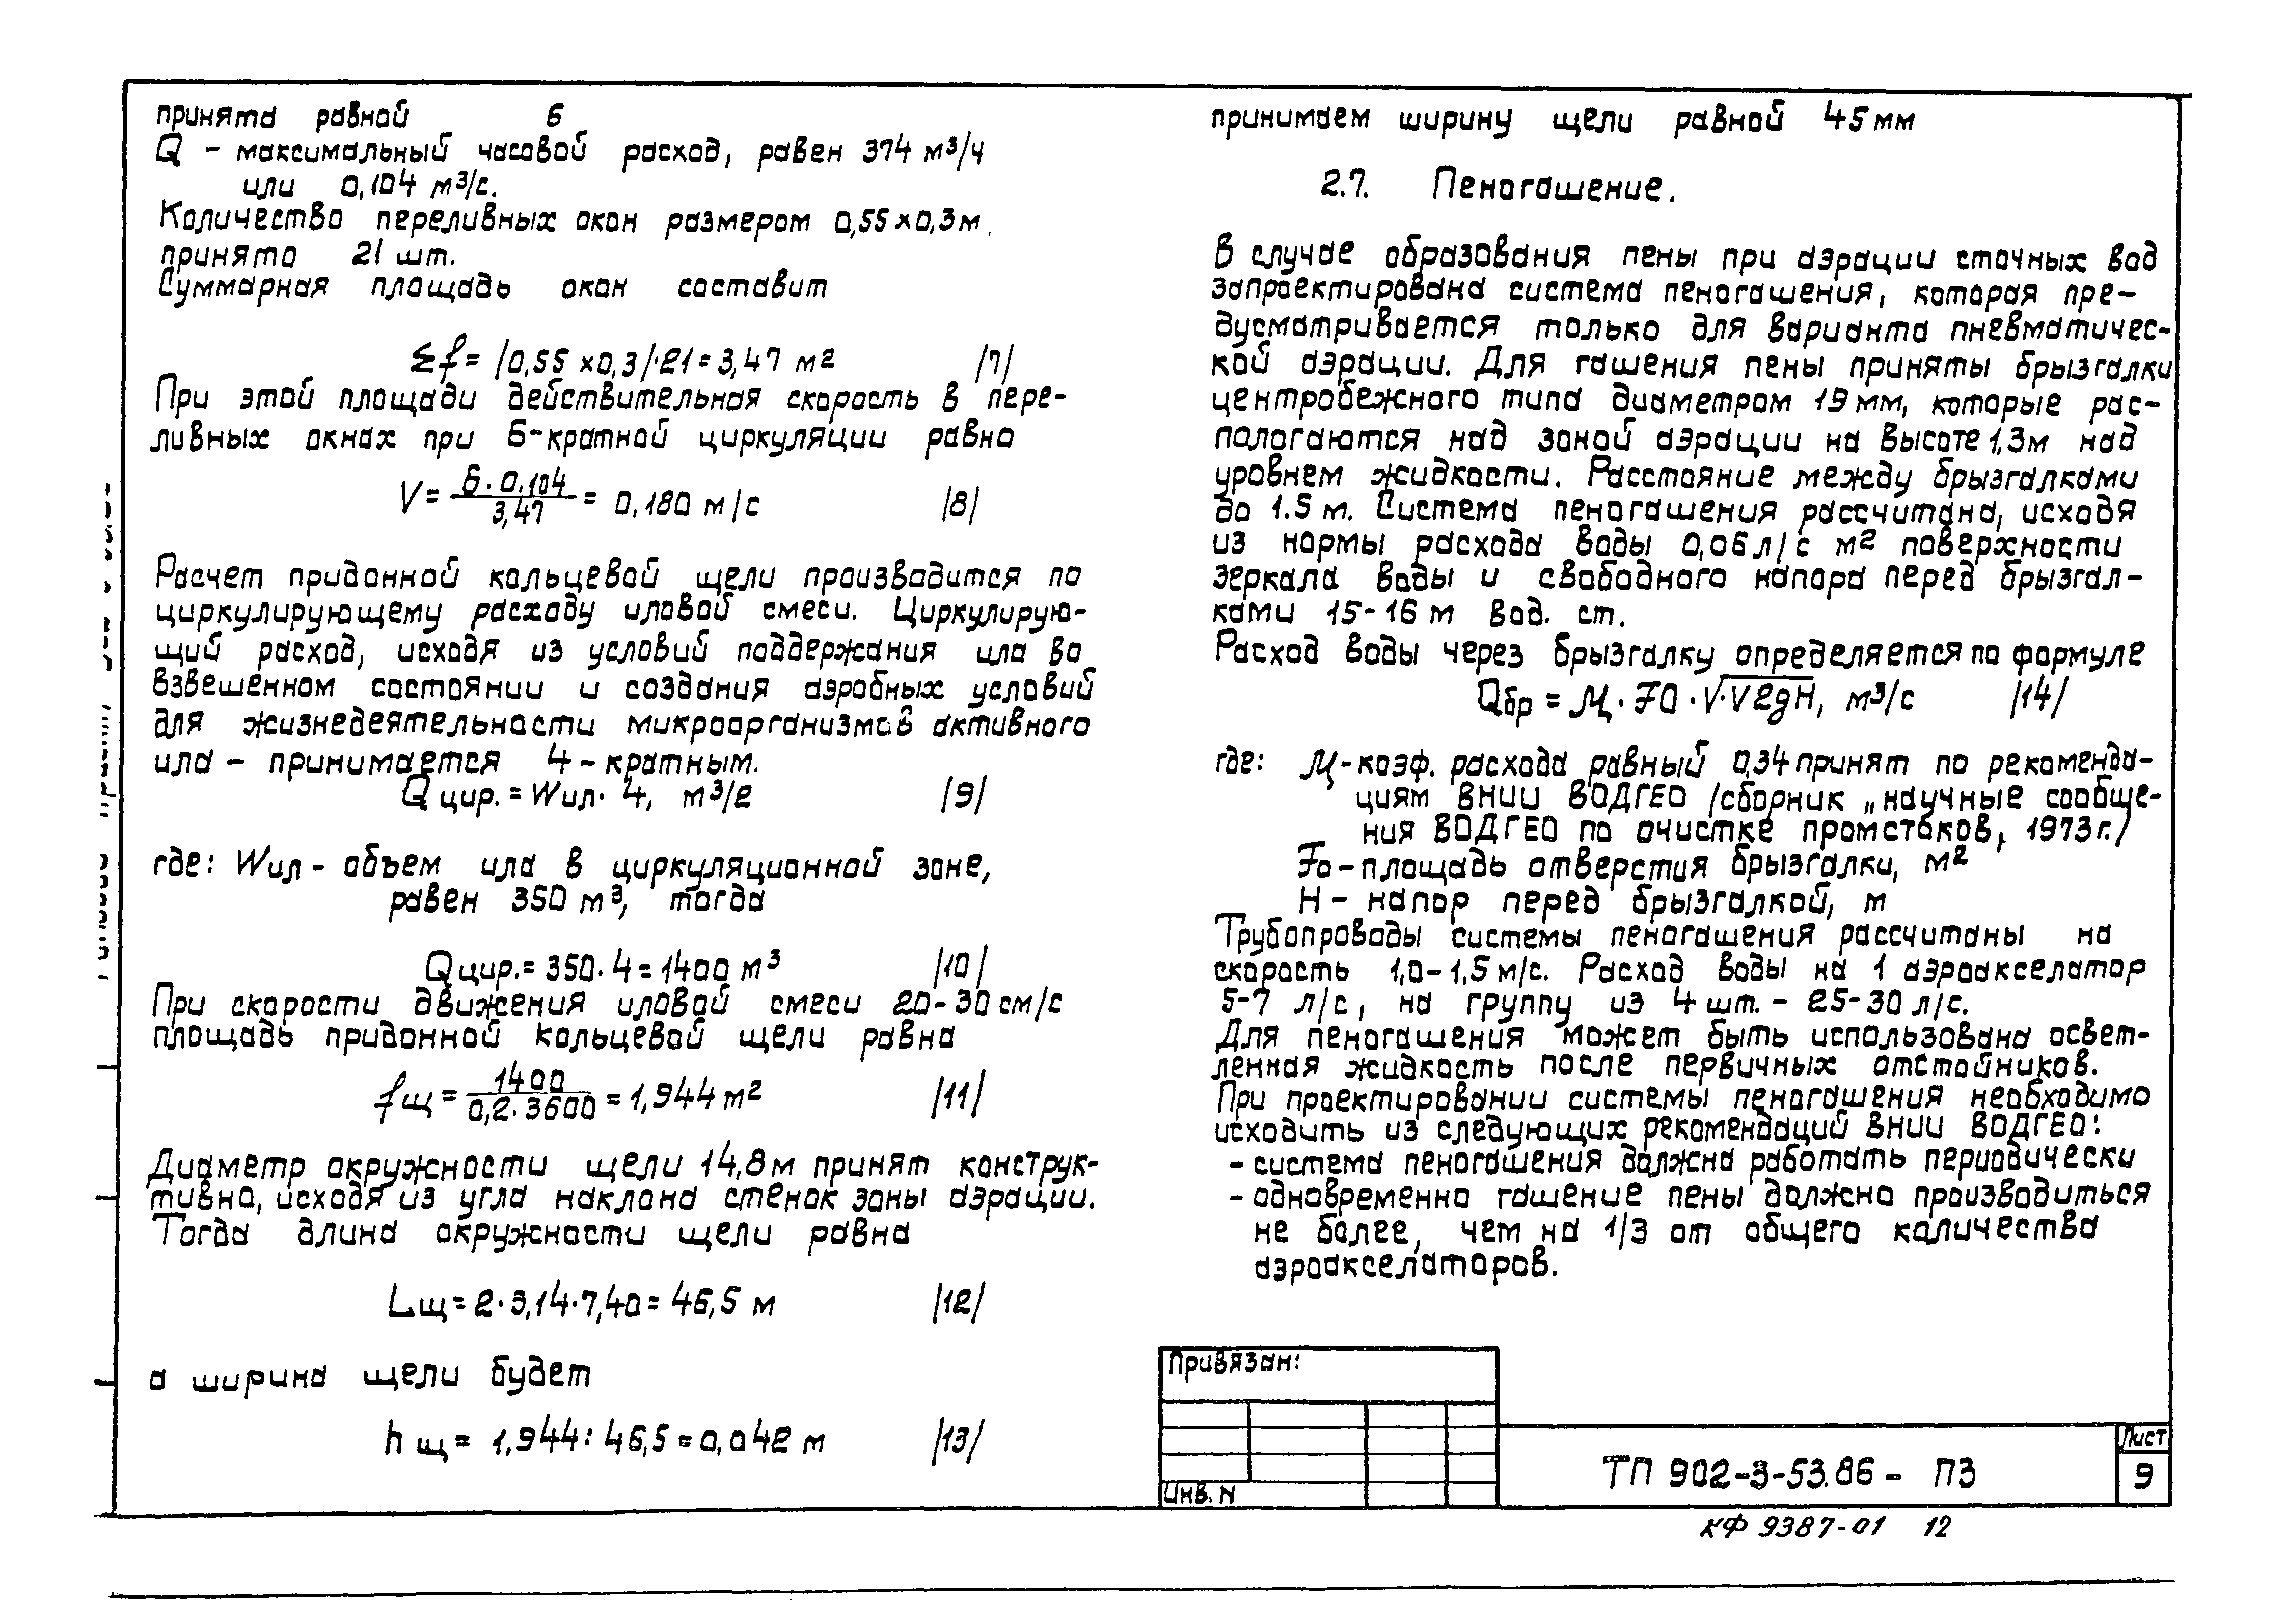 принята равной 6
Q - максимальный часовой расход, равен 374 м³/ч
или 0,104 м³/с.
Количество переливных окон размером 0,55×0,3м.
принято 21 шт.
Суммарная площадь окон составит
Σf = /0,55 ×0,3/·21 = 3,47 м² /7/
При этой площади действительная скорость в пере-
ливных окнах при 6-кратной циркуляции равна
V = 6·0,104 / 3,47 = 0,180 м/с /8/
Расчет придонной кольцевой щели производится по
циркулирующему расходу иловой смеси. Циркулирую-
щий расход, исходя из условий поддержания ила во
взвешенном состоянии и создания аэробных условий
для жизнедеятельности микроорганизмов активного
ила - принимается 4-кратным.
Qцир. = Wил· 4, м³/г /9/
где: Wил - объем ила в циркуляционной зоне,
равен 350 м³, тогда
Qцир. = 350·4 = 1400 м³ /10/
При скорости движения иловой смеси 20-30 см/с
площадь придонной кольцевой щели равна
fщ = 1400 / 0,2·3600 = 1,944 м² /11/
Диаметр окружности щели 14,8м принят конструк-
тивно, исходя из угла наклона стенок зоны аэрации.
Тогда длина окружности щели равна
Lщ = 2·3,14·7,40 = 46,5 м /12/
а ширина щели будет
hщ = 1,944 : 46,5 = 0,042 м /13/
принимаем ширину щели равной 45мм
2.7. Пеногашение.
В случае образования пены при аэрации сточных вод
запроектирована система пеногашения, которая пре-
дусматривается только для варианта пневматичес-
кой аэрации. Для гашения пены приняты брызгалки
центробежного типа диаметром 19 мм, которые рас-
пологаются над зоной аэрации на высоте 1,3м над
уровнем жидкости. Расстояние между брызгалками
до 1.5 м. Система пеногашения рассчитана, исходя
из нормы расхода воды 0,06 л/с м² поверхности
зеркала воды и свободного напора перед брызгал-
ками 15-16 м вод. ст.
Расход воды через брызгалку определяется по формуле
Qбр = μ · Fо · √·V2gH, м³/с /14/
где: μ-коэф. расхода равный 0,34 принят по рекоменда-
циям ВНИИ ВОДГЕО /сборник „научные сообще-
ния ВОДГЕО по очистке промстоков, 1973г./
Fо - площадь отверстия брызгалки, м²
H - напор перед брызгалкой, м
Трубопроводы системы пеногашения рассчитаны на
скорость 1,0-1,5 м/с. Расход воды на 1 аэроакселатор
5-7 л/с, на группу из 4 шт. - 25-30 л/с.
Для пеногашения может быть использована освет-
ленная жидкость после первичных отстойников.
При проектировании системы пеногашения необходимо
исходить из следующих рекомендаций ВНИИ ВОДГЕО:
- система пеногашения должна работать периодически
- одновременно гашение пены должно производиться
не более, чем на 1/3 от общего количества
аэроакселаторов.
Привязан:
Инв. N
ТП 902-3-53.86 - ПЗ
Лист
9
КФ 9387-01 12